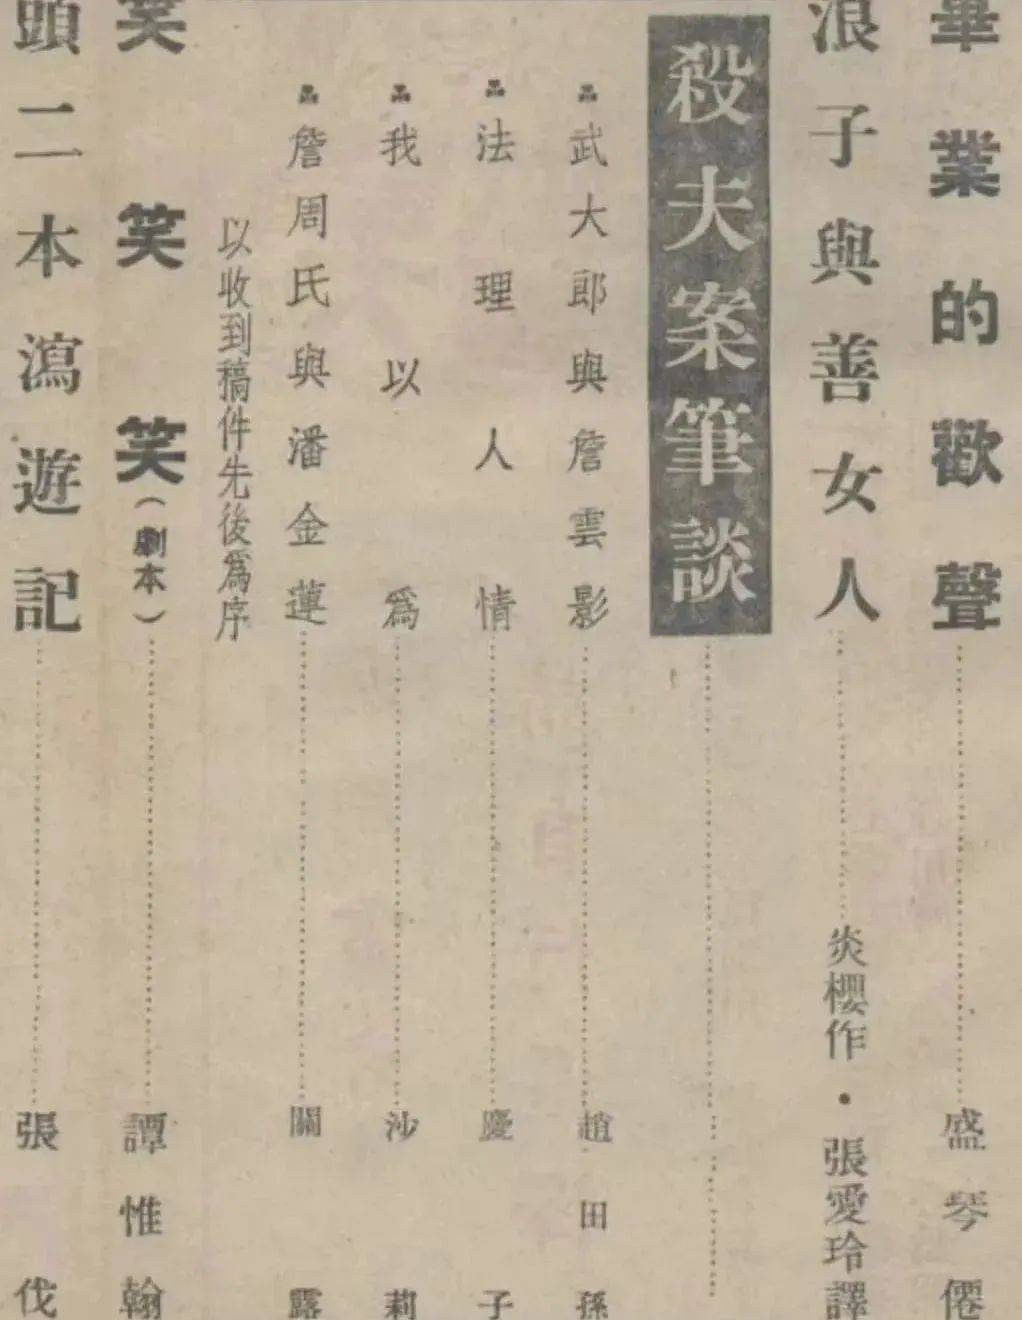 畢業的歡聲 盛琴僊
浪子與善女人 炎櫻作・張愛玲譯
殺夫案筆談
武大郎與詹雲影 趙田孫
法理人情 慶子
我以為 沙莉
詹周氏與潘金蓮 關露
以收到稿件先後為序
笑笑笑（劇本） 譚惟翰
頭二本瀉遊記 張伐